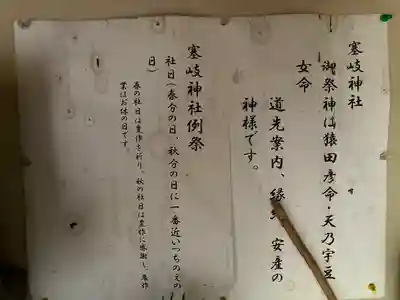 塞岐神社
御祭神は猿田彦命・天乃宇豆
女命
道先案内、縁結 安産の
神様です。
塞岐神社例祭
社日(春分の日、秋分の日に一番近いつちのえの
日)
春の社日は豊作を祈り、秋の社日は豊作に感謝し、農作
業はお休の日です。